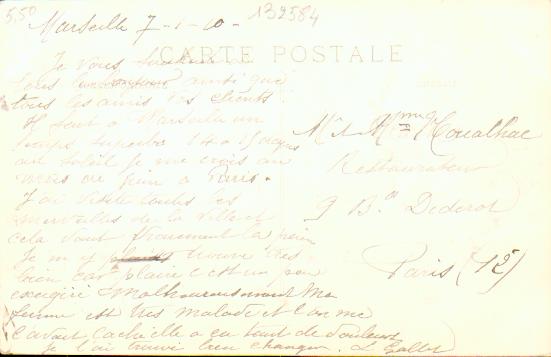 5.50
132584
Marseille 7-1-10-
CARTE POSTALE
Je vous
tous ainsi que
tous les amis vos clients
Il fait a Marseille un
temps superbe 14 a 15 degrés
au soleil je me crois au
mois de juin a Paris.
J'ai visité toutes les
merveilles de la ville et
cela vaut vraiment la peine
Je m'y trouve très
bien car c'est un peu
exagéré malheureusement Ma
femme est très malade et l'on me
l'avait caché elle a eu tant de douleurs
je l'ai trouvé bien changer. L Gallet
Mr & Mme Houalhac
Restaurateur
9 Bd Diderot
Paris (12e)